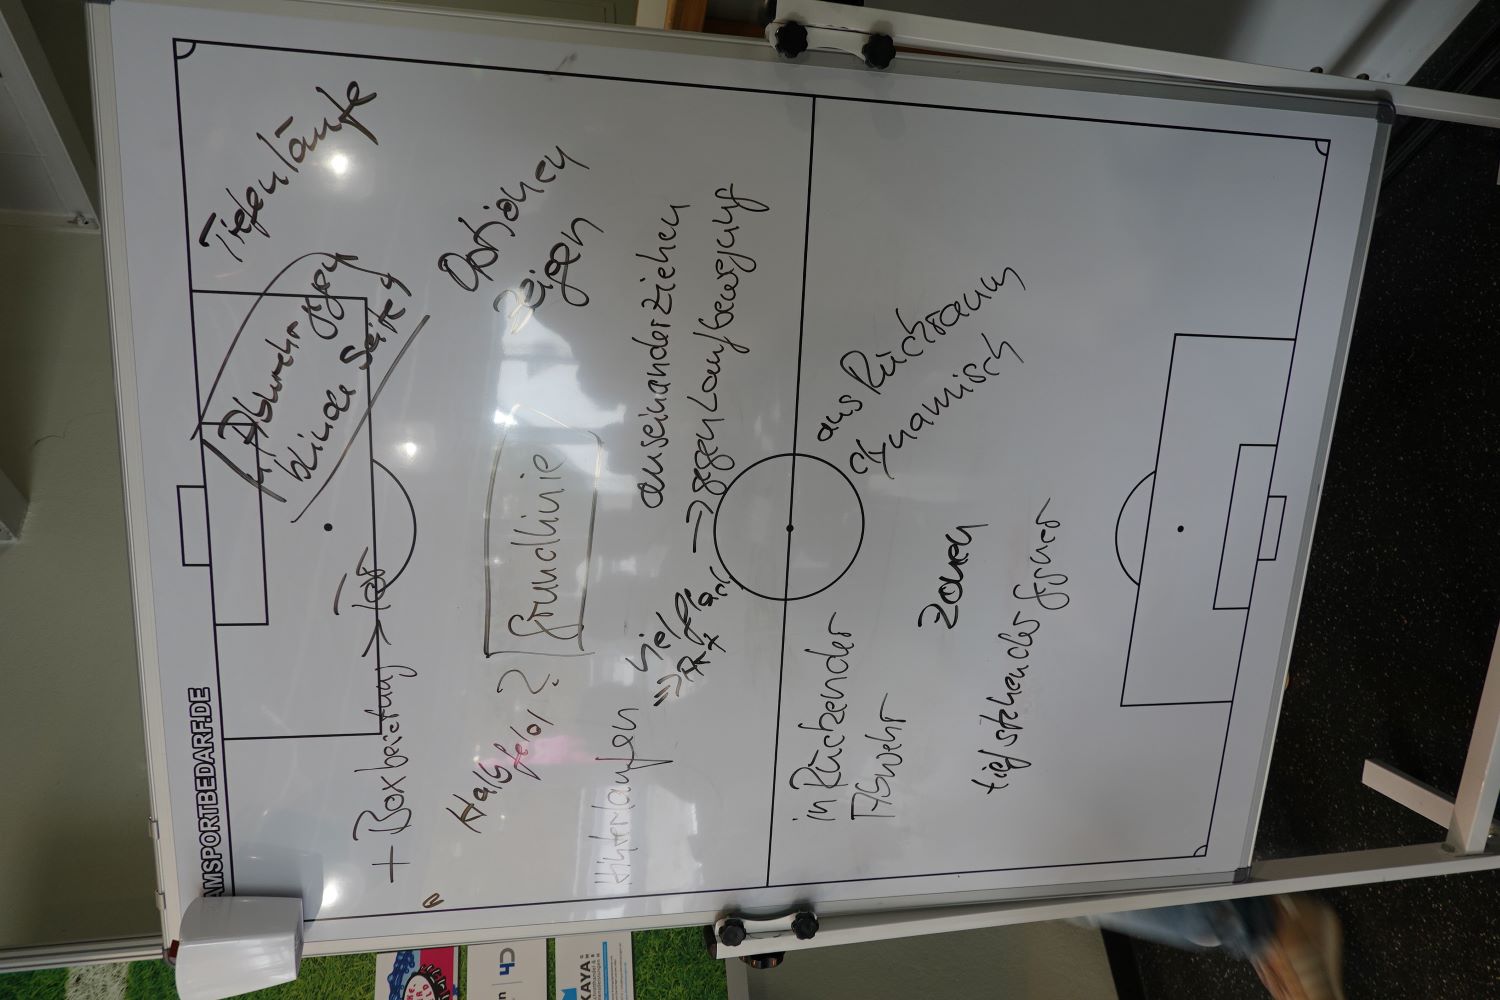 AMSPORTBEDARF.DE
Tiefenläufe
Abwehr gegen
blinde Seite
+ Boxbesetzung → Tor
Optionen
zeigen
Halbfeld?
Grundlinie
auseinanderziehen
Hinterlaufen
→ gegen Laufbewegung
viel
aus Rückraum
dynamisch
in Rückender
Abwehr
zonen
tief stehender Gegner
4D
KAYA